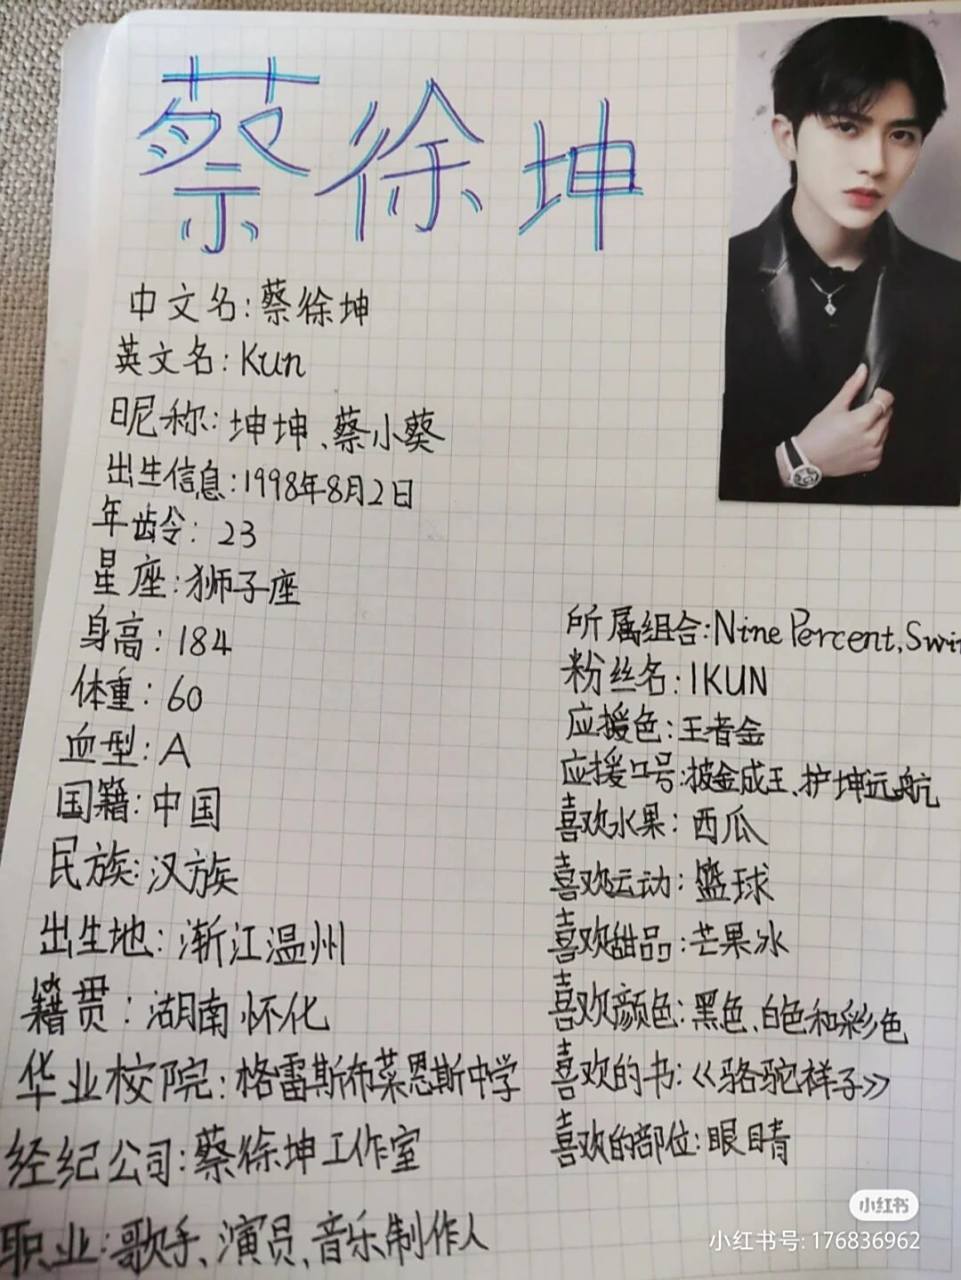 蔡徐坤
中文名:蔡徐坤
英文名:Kun
昵称:坤坤、蔡小葵
出生信息:1998年8月2日
年龄:23
星座:狮子座
身高:184
体重:60
血型:A
国籍:中国
民族:汉族
出生地:浙江温州
籍贯:湖南怀化
毕业校院:格雷斯布莱恩斯中学
经纪公司:蔡徐坤工作室
职业:歌手、演员、音乐制作人
所属组合:Nine Percent,Swi
粉丝名:IKUN
应援色:王者金
应援口号:披金成王、护坤远航
喜欢水果:西瓜
喜欢运动:篮球
喜欢甜品:芒果冰
喜欢颜色:黑色、白色和彩色
喜欢的书:《骆驼祥子》
喜欢的部位:眼睛
小红书
小红书号:176836962